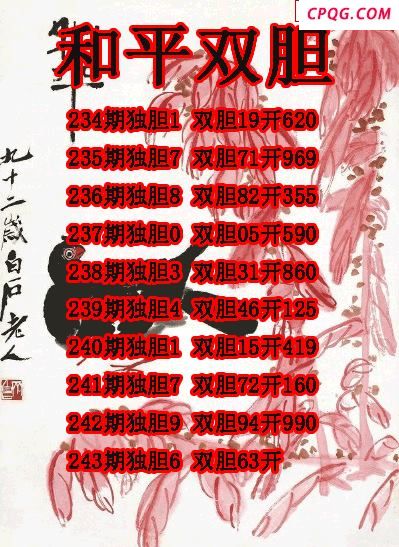 CPQG.COM
和平双胆
234期独胆1 双胆19开620
235期独胆7 双胆71开969
236期独胆8 双胆82开355
237期独胆0 双胆05开590
238期独胆3 双胆31开860
239期独胆4 双胆46开125
240期独胆1 双胆15开419
241期独胆7 双胆72开160
242期独胆9 双胆94开990
243期独胆6 双胆63开
九十二岁白石老人